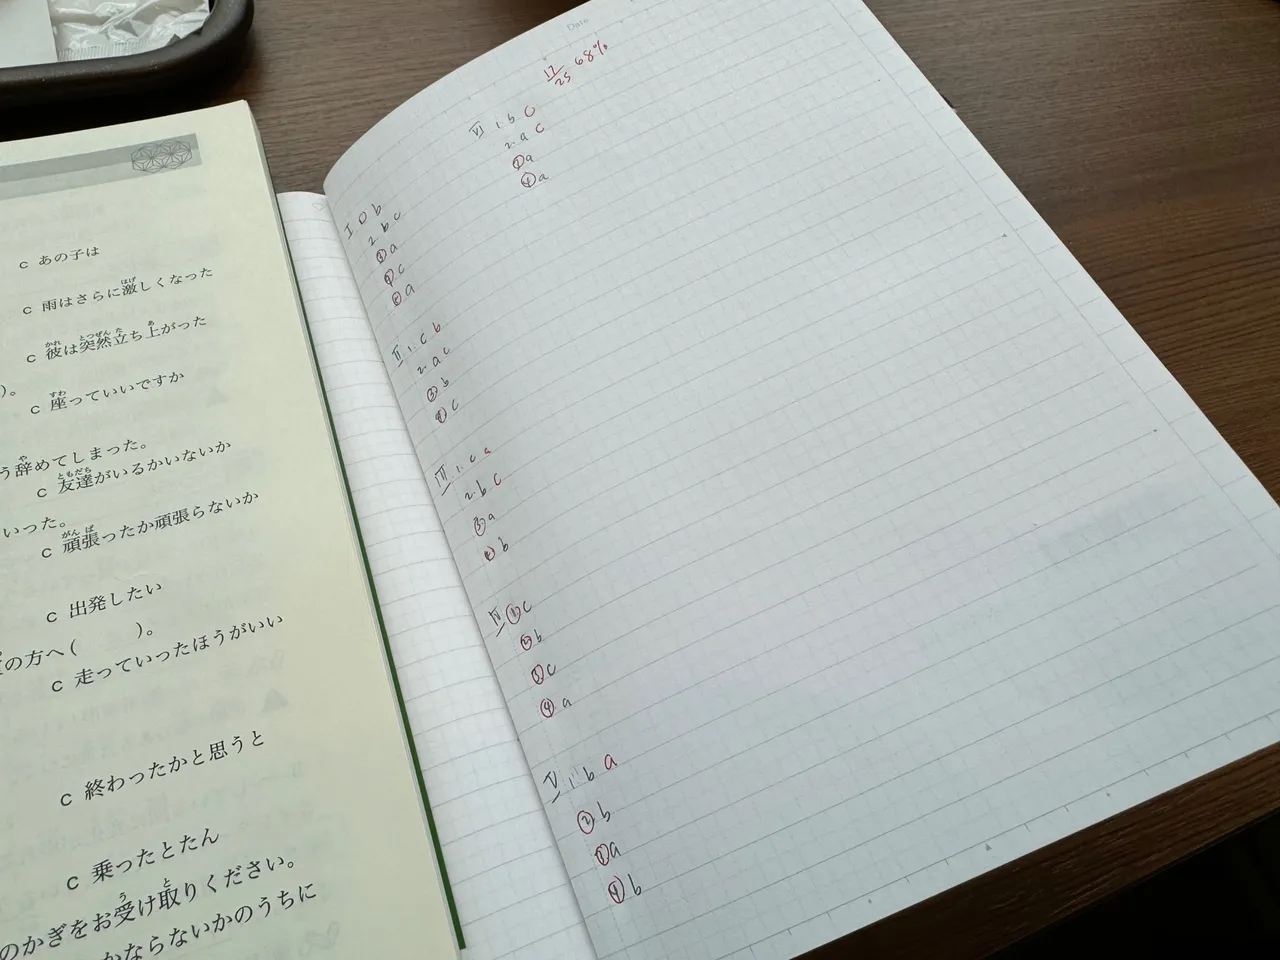 c あの子は
c 雨はさらに激しくなった
c 彼は突然立ち上がった
)。
c 座っていいですか
う辞めてしまった。
c 友達がいるかいないか
いった。
c 頑張ったか頑張らないか
c 出発したい
の方へ( )。
c 走っていったほうがいい
c 終わったかと思うと
c 乗ったとたん
のかぎをお受け取りください。
かならないかのうちに
Date
17/25 68%
VI 1. b c
2. a c
③ a
④ a
I ① b
2. b c
③ a
④ c
⑤ a
II 1. c b
2. a c
③ b
④ c
III 1. c a
2. b c
③ a
④ b
IV ① c
② b
③ c
④ a
V 1. b a
② b
③ a
④ b